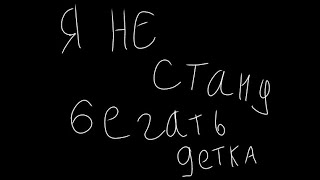 Я НЕ
СТАНУ
бЕГАТЬ
дЕТКА